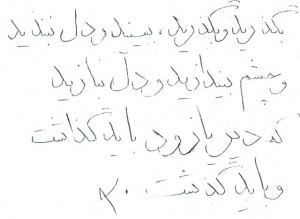 بگذرید و بگذرید، ببینید و دل نبندید
و چشم بیندازید و دل نبازید
که دیر یا زود باید گذاشت
و باید گذشت.